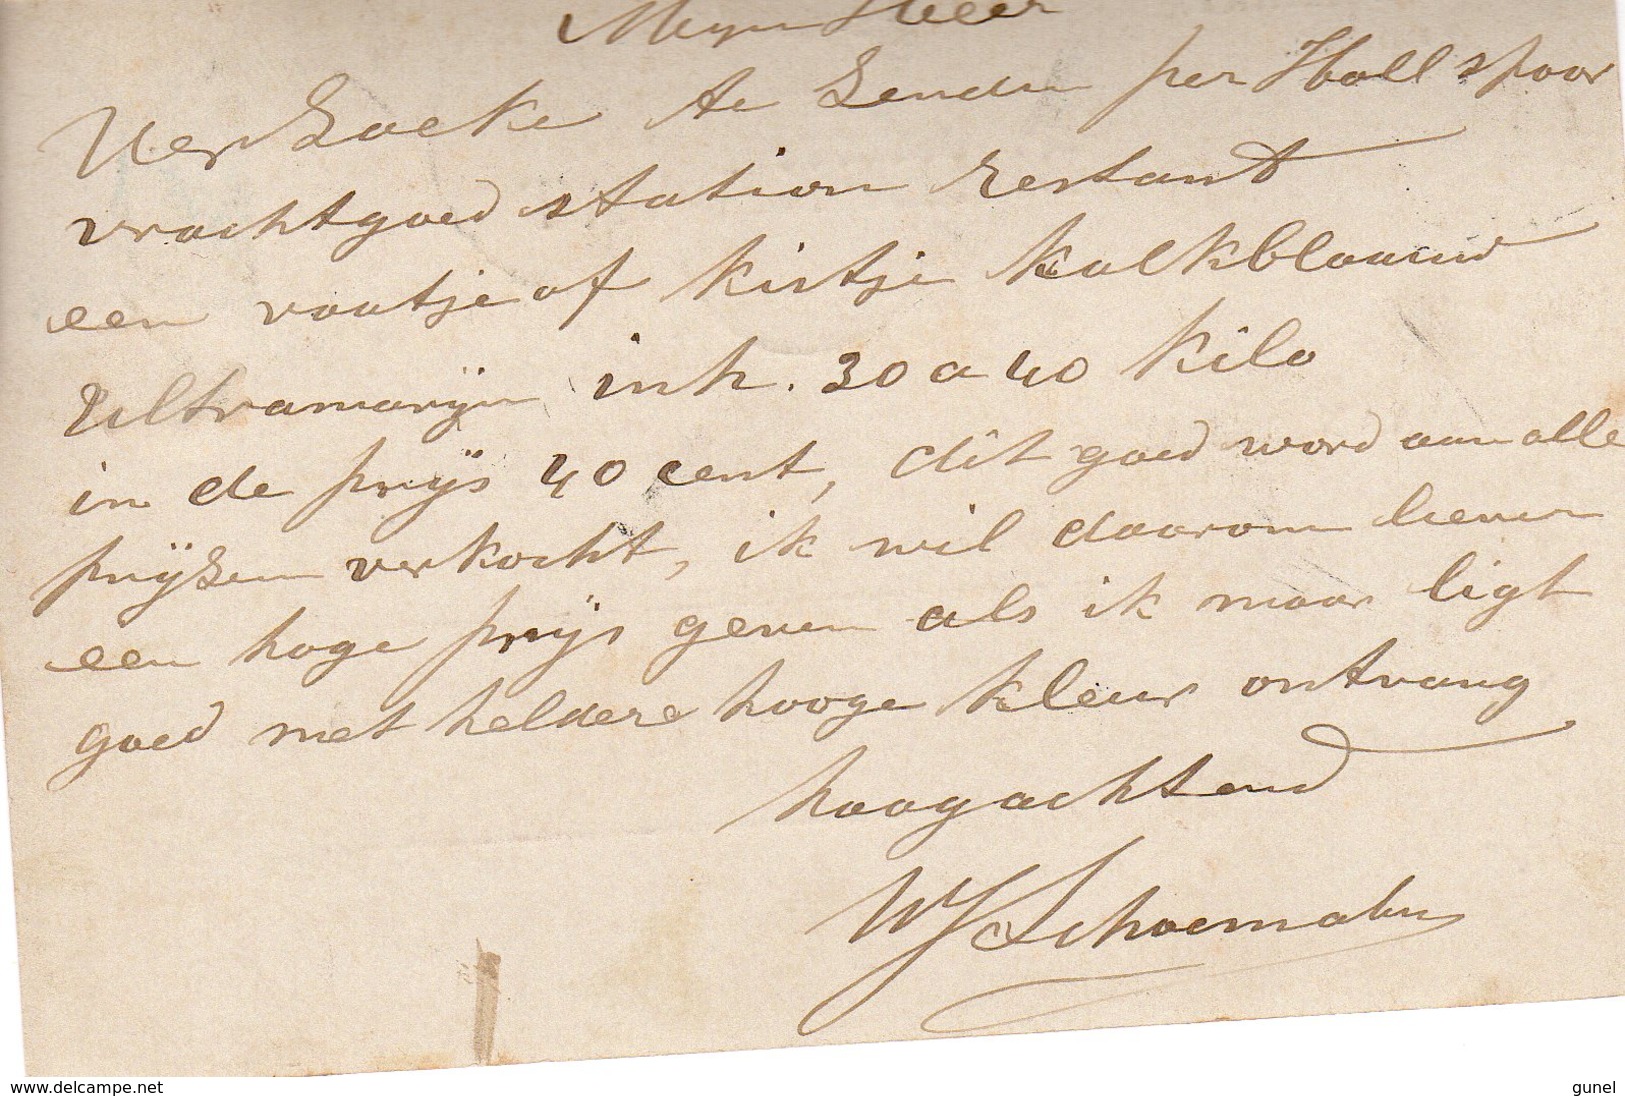 Mijn Heer
Verzoeke te zenden per Holl spoor
vrachtgoed station restant
een vaatje of kistje kalkblaauw
Ultramarijn inh. 30 a 40 kilo
in de prijs 40 cent, dit goed word aan alle
prijzen verkocht, ik wil daarom liever
een hoge prijs geven als ik maar ligt
goed met heldere hooge kleur ontvang
hoogachtend
W Schoemaker
www.delcampe.net
gunel